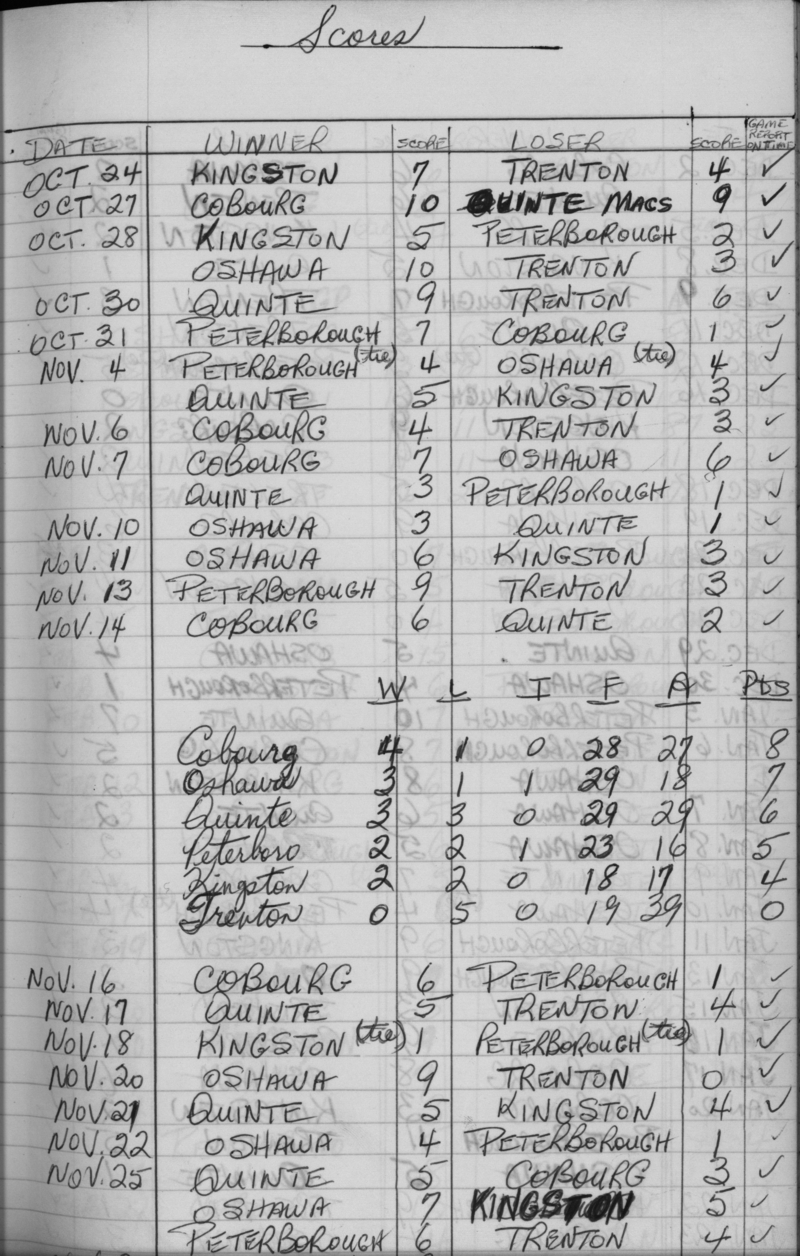 Scores
DATE WINNER SCORE LOSER SCORE GAME REPORT ON TIME
OCT. 24 KINGSTON 7 TRENTON 4 ✓
OCT 27 COBOURG 10 QUINTE MACS 9 ✓
OCT. 28 KINGSTON 5 PETERBOROUGH 2 ✓
OSHAWA 10 TRENTON 3 ✓
OCT. 30 QUINTE 9 TRENTON 6 ✓
OCT. 31 PETERBOROUGH 7 COBOURG 1 ✓
NOV. 4 PETERBOROUGH (tie) 4 OSHAWA (tie) 4 ✓
QUINTE 5 KINGSTON 3 ✓
NOV. 6 COBOURG 4 TRENTON 3 ✓
NOV. 7 COBOURG 7 OSHAWA 6 ✓
QUINTE 3 PETERBOROUGH 1 ✓
NOV. 10 OSHAWA 3 QUINTE 1 ✓
NOV. 11 OSHAWA 6 KINGSTON 3 ✓
NOV. 13 PETERBOROUGH 9 TRENTON 3 ✓
NOV. 14 COBOURG 6 QUINTE 2 ✓
W L T F A Pts
Cobourg 4 1 0 28 27 8
Oshawa 3 1 1 29 18 7
Quinte 3 3 0 29 29 6
Peterboro 2 2 1 23 16 5
Kingston 2 2 0 18 17 4
Trenton 0 5 0 19 39 0
NOV. 16 COBOURG 6 PETERBOROUGH 1 ✓
NOV. 17 QUINTE 5 TRENTON 4 ✓
NOV. 18 KINGSTON (tie) 1 PETERBOROUGH (tie) 1 ✓
NOV. 20 OSHAWA 9 TRENTON 0 ✓
NOV. 21 QUINTE 5 KINGSTON 4 ✓
NOV. 22 OSHAWA 4 PETERBOROUGH 1 ✓
NOV. 25 QUINTE 5 COBOURG 3 ✓
OSHAWA 7 KINGSTON 5 ✓
PETERBOROUGH 6 TRENTON 4 ✓